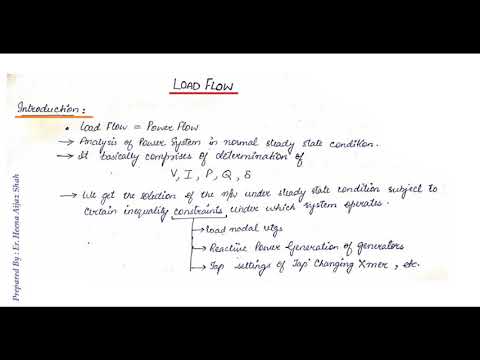 LOAD FLOW
Introduction:
• Load Flow = Power Flow
→ Analysis of Power System in normal steady state condition.
→ It basically comprises of determination of
V, I, P, Q, δ
→ We get the solution of the n/w under steady state condition subject to
certain inequality constraints under which system operates.
→ load nodal vtgs
→ Reactive Power Generation of generators
→ Tap settings of Tap Changing Xmer, etc.
Prepared By: Er. Heena Aijaz Shah